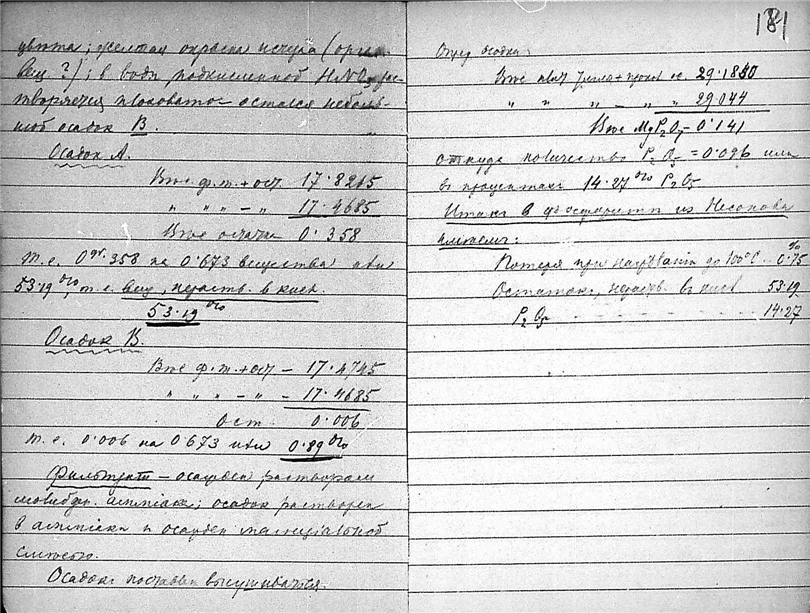 цвѣта; желтая окраска исчезла (орган.
вещ?); в водѣ подкисленной HNO3 рас-
творяется плоховато; остался неболь-
шой осадок B.
Осадок А.
Вѣс ф. т. + ост. 17·8215
" " " — " 17·4685
Вѣс остатка 0·358
т.е. 0гр.358 на 0·673 вещества или
53·19 %, т.е. вещ., нераств. в кисл.
53·19 %
Осадок B.
Вѣс ф. т. + ост — 17·4745
" " " — " — 17·4685
Ост. 0·006
т.е. 0·006 на 0·673 или 0·89 %
Фильтрат — осажден раствором
молибден. амміака; осадок растворен
в амміаке и осажден магнезіальной
смѣсью.
Осадок поставлен высушиваться.
181
Опред. осадка:
Вѣс плат. тигля + прокал. ос. 29·1850
" " " — " " 29·044
Вѣс Mg2P2O7 — 0·141
откуда количество P2O5 = 0·096 или
в процентах 14·27 % P2O5
Итак в фосфорите из
имѣем:
Потеря при нагрѣваніи до 100°C .. 0·75 %
Остаток, нераств. в кисл. 53·19
P2O5 - - - - - - - 14·27